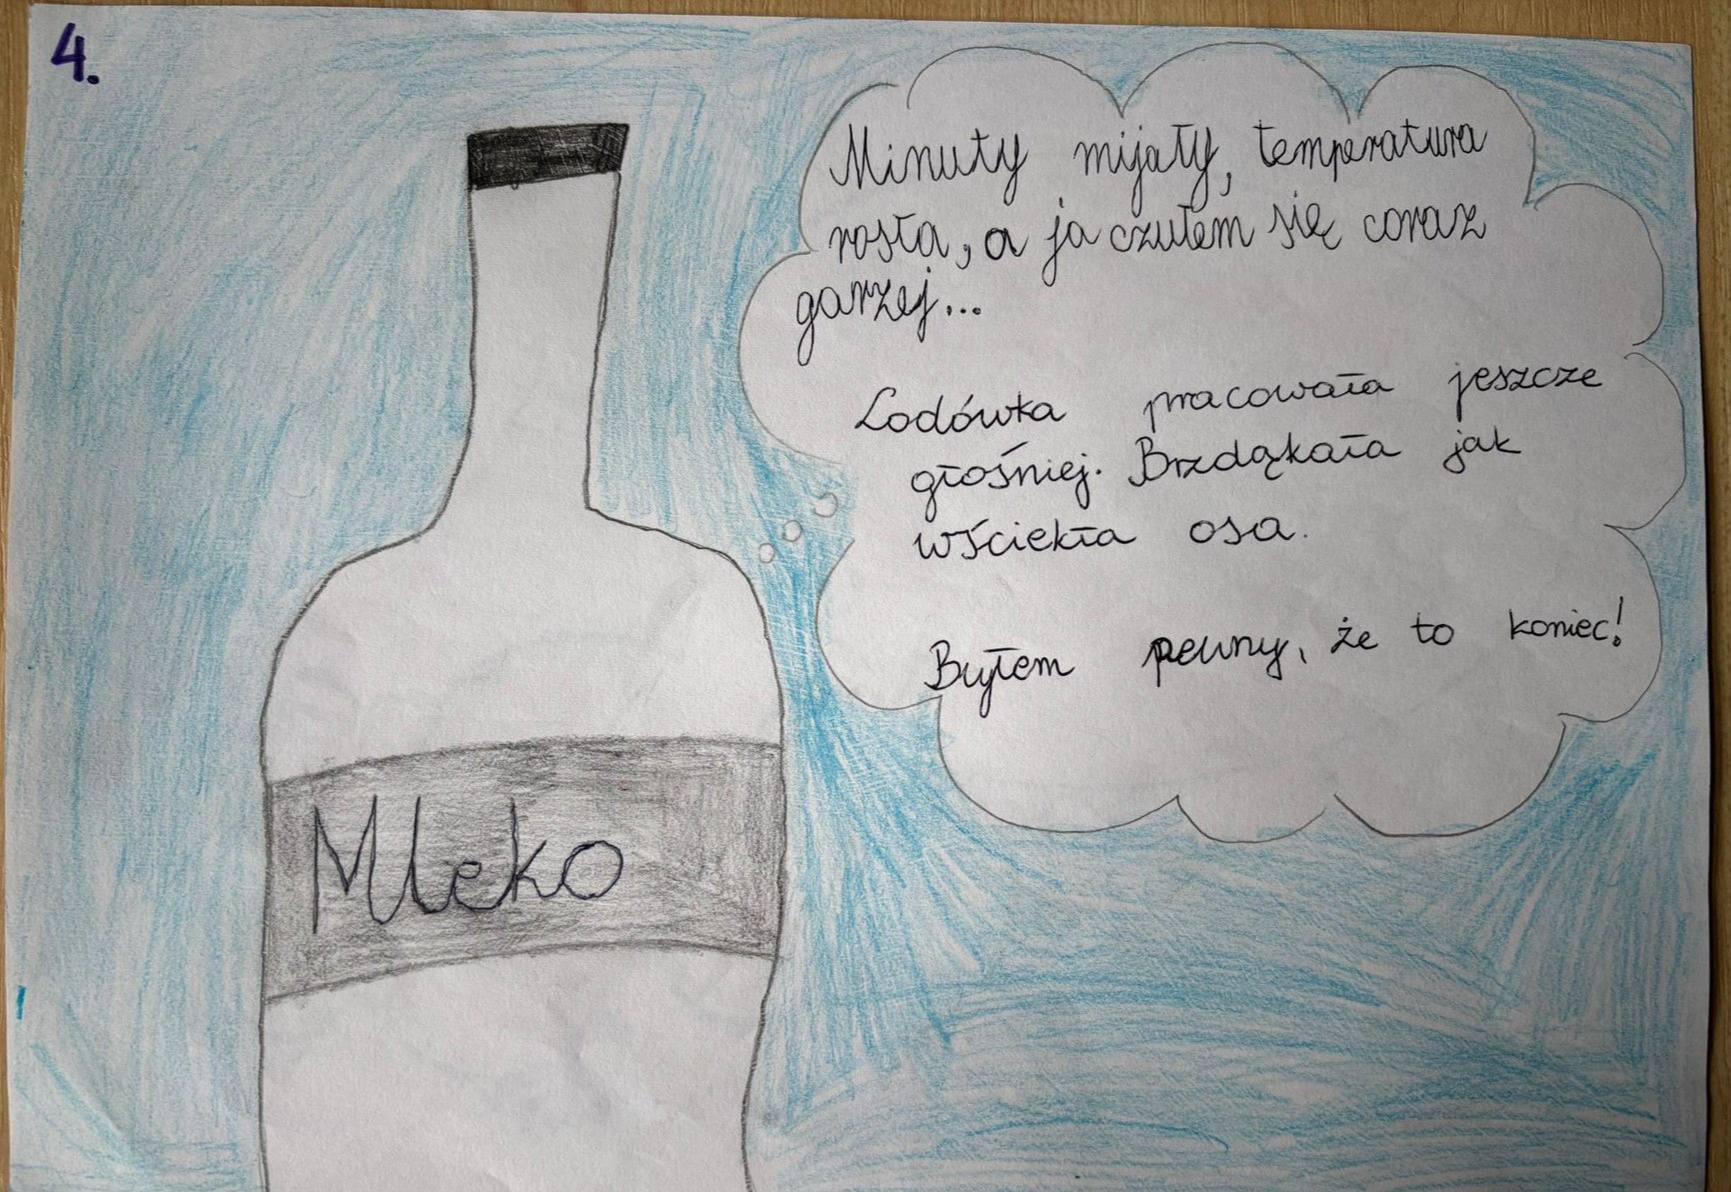 4.
Minuty mijały, temperatura
rosła, a ja czułem się coraz
gorzej...
Lodówka pracowała jeszcze
głośniej. Brzdąkała jak
wściekła osa.
Byłem pewny, że to koniec!
Mleko